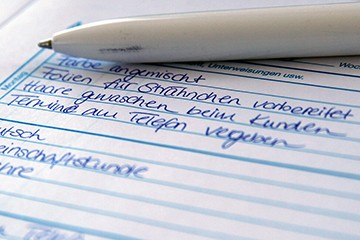 Unterweisungen usw.
Farbe angemischt
Folien für Strähnchen vorbereitet
Haare gewaschen beim Kunden
Termine am Telefn vegeben
utsch
einschaftskunde
hre